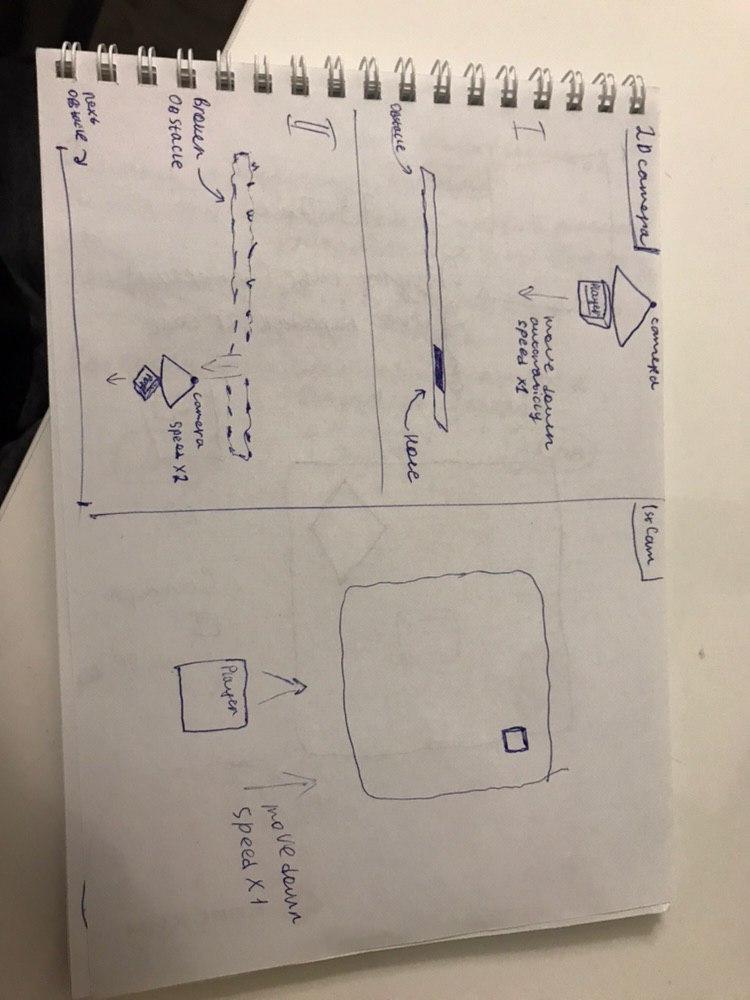 2D camera
I
camera
Player
move down
automaticly
speed x1
Obstacle
Hole
II
Broken
Obstacle
camera
speed x2
next
obstacle
1st Cam
Player
move down
speed x1